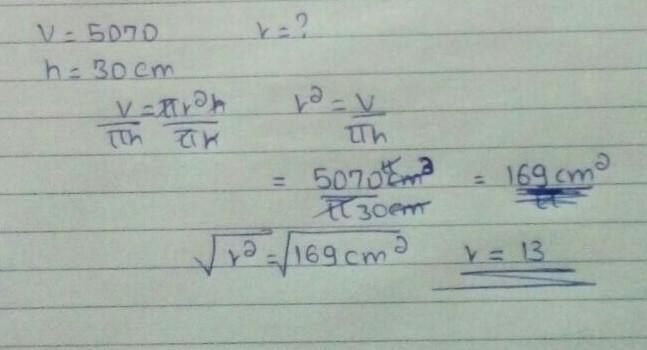 V = 5070 r = ?
h = 30 cm
V/πh = πr²h/πh r² = V/πh
= 5070 cm³/π30cm = 169 cm²
√r² = √169 cm² r = 13